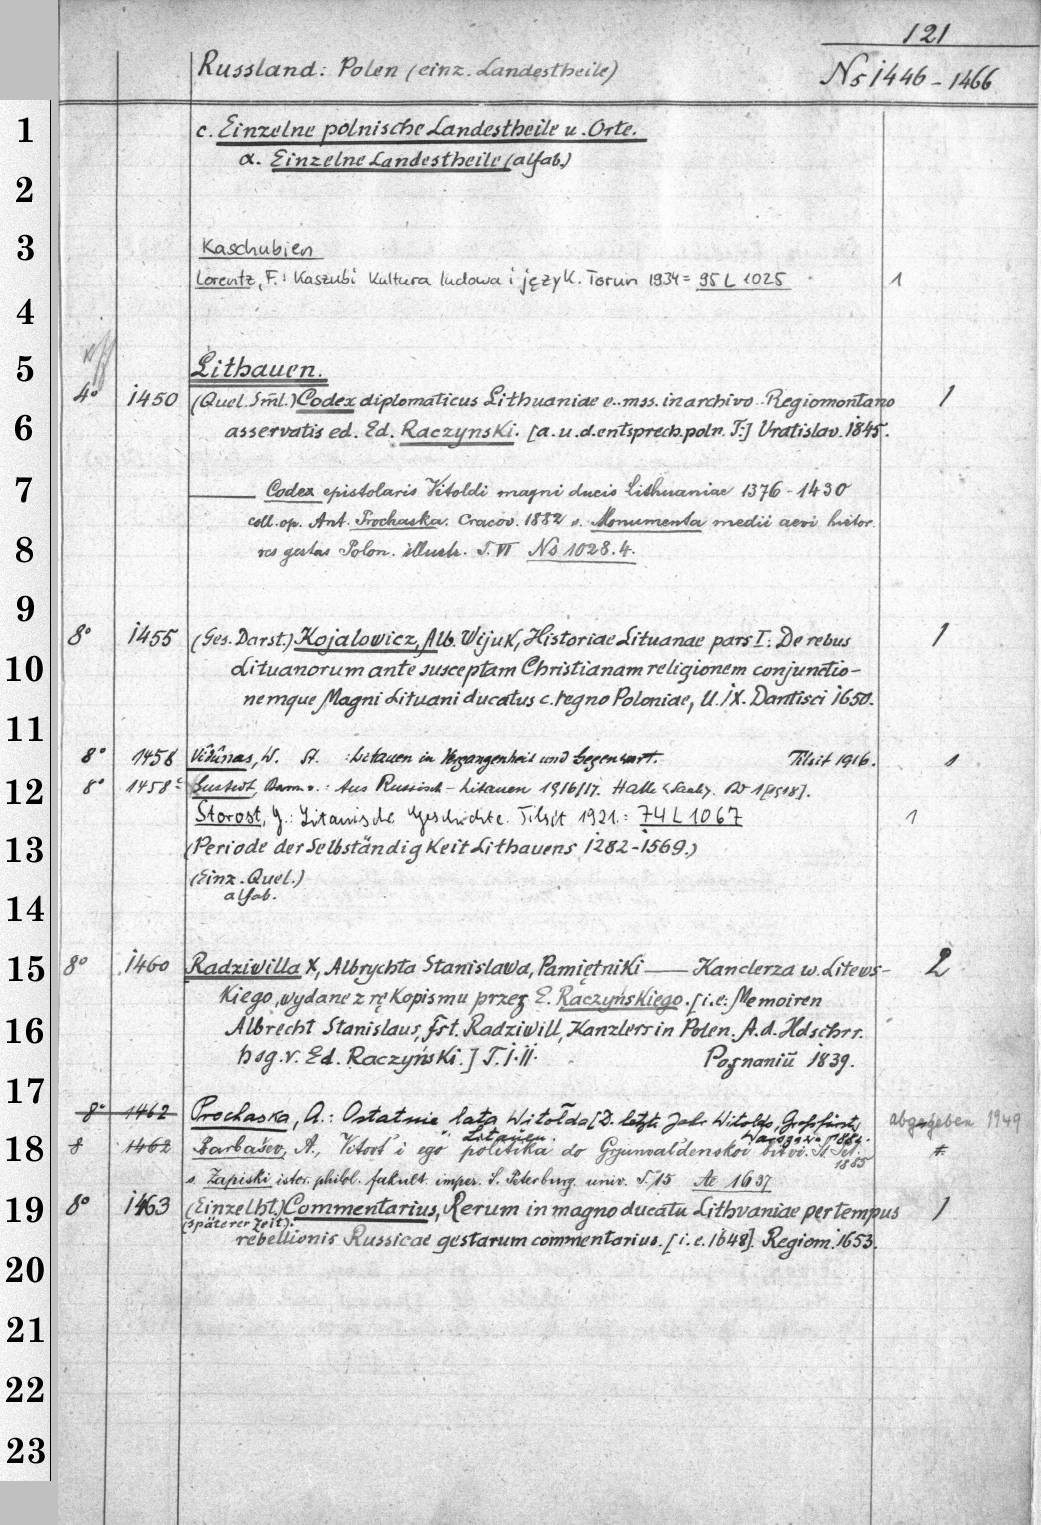 121
Russland: Polen (einz. Landestheile)
No 1446 - 1466
1
c. Einzelne polnische Landestheile u. Orte.
α. Einzelne Landestheile (alfab.)
2
3
Kaschubien
Lorentz, F.: Kaszubi Kultura ludowa i język. Torun 1934 = 95 L 1025 1
4
5
Lithauen.
4° 1450 (Quel. Sml.) Codex diplomaticus Lithuaniae e.. mss. in archivo.. Regiomontano 1
6
asservatis ed. Ed. Raczynski. [a. u. d. entsprech. poln. T.] Vratislav. 1845.
7
Codex epistolaris Vitoldi magni ducis Lithuaniae 1376 - 1430
coll. op. Ant. Prochaska. Cracov. 1882 s. Monumenta medii aevi histor.
8
res gestas Polon. illustr. T. VI No 1028.4.
9
8° 1455 (Ges. Darst.) Kojalowicz, Alb. Wijuk, Historiae Lituanae pars I: De rebus 1
10
Lituanorum ante susceptam Christianam religionem conjunctio-
nemque Magni Lituani ducatus c. regno Poloniae, U. IX. Dantisci 1650.
11
8° 1458 Vidûnas, W. St. : Litauen in Vergangenheit und Gegenwart. Tilsit 1916. 1
12
8° 1458 : Aus Russisch-Litauen 1916/17. Halle
Storost, J.: Litauische Geschichte. Tilsit 1921.: 74 L 1067 1
13
(Periode der Selbständigkeit Lithauens 1282-1569.)
(Einz. Quel.)
alfab.
14
15
8° 1460 Radziwilla X, Albrychta Stanislawa, Pamiętniki —— Kanclerza w. Litews- 2
kiego, wydane z rękopismu przez E. Raczyńskiego. [i.e: Memoiren
16
Albrecht Stanislaus, Fst. Radziwill, Kanzlers in Polen. A. d. Hdschrr.
hsg. v. Ed. Raczyński.] T. I. II. Poznaniŭ 1839.
17
8° 1462 Prochaska, A.: Ostatnie lata Witołda [D. letzte Jahr Witolds, Großfürst, abgegeben 1949
Litauen. Warszawa 1882.
18
8 1462 Barbašev, A., Vitovt i ego politika do Grjunvaldenskoi bitvi. St. Pet.
1885
s. Zapiski istor. philol. fakult. imper. S. Peterburg. univ. T. 15 Ac 1637
19
8° 1463 (Einzelht.) Commentarius, Rerum in magno ducatu Lithvaniae per tempus 1
(späterer Zeit).
rebellionis Russicae gestarum commentarius. [i. e. 1648]. Regiom. 1653.
20
21
22
23